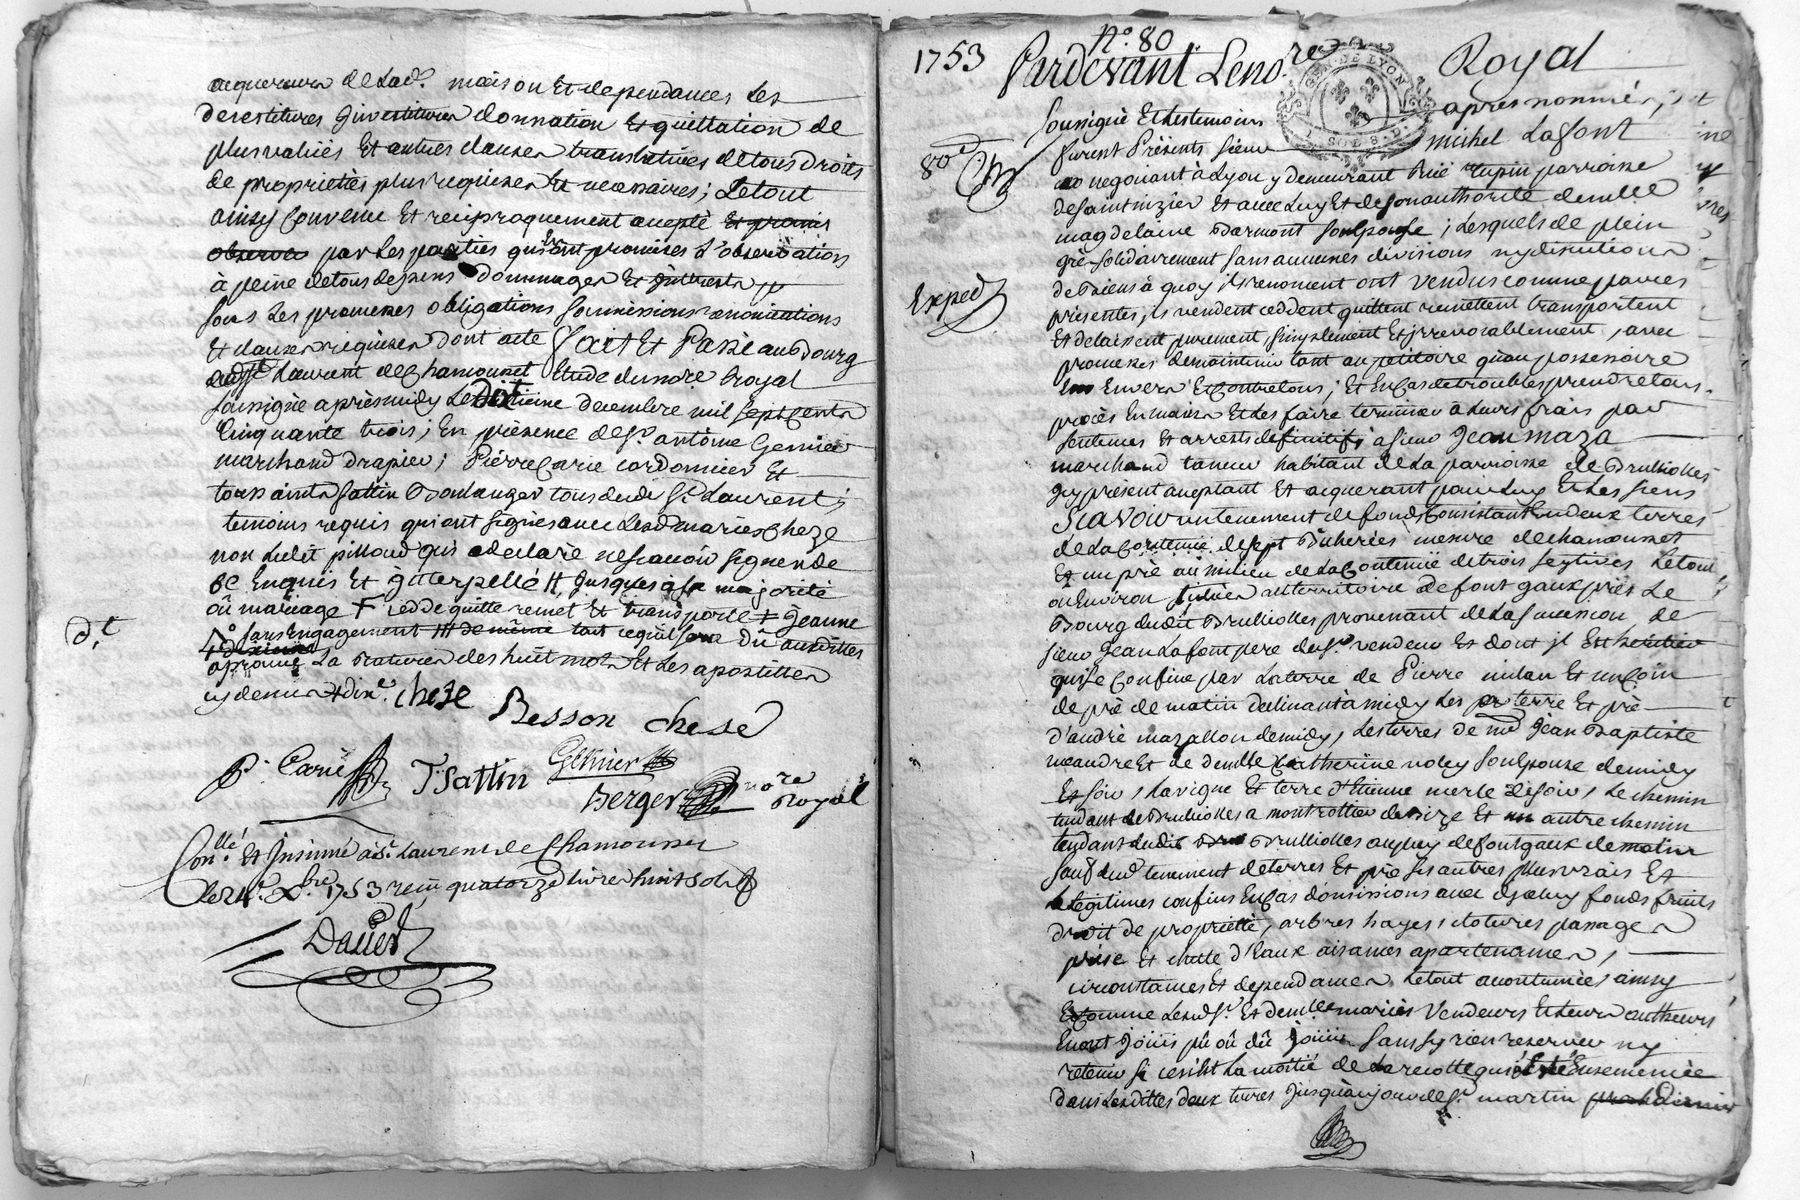 acquereurs de lad.e maison Et dependances Les
devestitures Jnvestitures donnation Et quittation de
plus valües Et autres clauses translatives de tous droits
de proprietés plus requises Et necessaires; Le tout
ainsy Convenu Et reciproquement accepté Et promis
observer par Les parties qui ont promesses d'observations
à peine de tous depens dommages Et jnterests
sous Les promesses obligations soumissions renonciations
Et clauses requises dont acte fait Et Passé au Bourg
dud. St Laurent de Chamousset Etude du no.re Royal
soussigné après midy Le dixieme decembre mil sept cents
Cinquante trois; En presence de Sr antoine Gernier
marchand drapier; Pierre Carie cordonnier Et
toussaints sattin Boulanger tous dudt St Laurent;
temoins requis qui ont signés avec Lesd. mariés Cheze
non Ledit pilloud qui a declaré ne sçavoir signer de
ce Enquis Et jnterpellé // jusques a sa majorité
oû mariage + cedde quitte remet Et transporte + jeanne
sans Engagement de même tout requis sera dû auxdittes
aprouvé La rature des huit mots Et Les apostilles
cy dernier + dix.e cheze Besson cheze
d.t
P. Carie T. Sattin Gernier
Berger no.re Royal
Con.llé Et Jnsinué à St. Laurent de Chamousset
le 24.e Xbre 1753 reçu quatorze livres huit sols
Dauer
N.o 80
1753 Pardevant Le no.re Royal
GEN. DE LYON
soussigné Et Les temoins apres nommés;
80.e furent Présents sieur michel Lafont
negotiant à Lyon y demeurant Ruë Tupin parroisse
de saint nizier Et avec Luy Et de son authorité demlle
magdelaine Darmont son Epouse; Lesquels de plein
gré solidairement sans aucunes divisions ny discutions
de Biens à quoy ils renoncent ont vendus comme par ces
Exped
presentes, ils vendent ceddent quittent remettent transportent
Et delaissent purement, simplement Et jrrevocablement, avec
promesses de maintenir tant au petitoire qu'au possessoire
Envers Et Contre tous; Et En Cas de troubles prendre tous
procès En mains Et Les faire terminer à Leurs frais par
sentences Et arrests definitifs; a sieur Jean maza
marchand taneur habitant de La parroisse de Brullioles
jcy présent aceptant Et acquerant pour Luy Et Les siens
Sçavoir un tenement de fonds Consistant En deux terres
de La Contenüe de sept Bicherées mesure de chamousset
Et un pré au milieu de La Contenüe de trois seytives Le tout
ou Environ situés au territoire de font gaux près Le
Bourg dudit Brullioles provenant de La succession de
sieur Jean Lafont pere du Sr. vendeur Et dont jl Est heritier
qui se Confine par La terre de Pierre milan Et un Coin
de pré de matin declinant à midy Les terre Et pré
d'andré mazallon de midy, Les terres de me Jean Baptiste
meandre Et de demlle Catherine noley son Epouse de midy
Et soir, La vigne Et terre d'Etienne merle de soir, Le chemin
tendant de Brullioles a montrottier de Bize Et un autre chemin
tendant dudit Brullioles au puy de fontgaux de matin
sauf dud. tenement de terres Et pré ses autres plus vrais Et
Legitimes confins En Cas d'omissions avec ses fonds fruits
droit de proprieté, arbres hayes, clotures passages
prise Et chutte d'Eaux aisances apartenances,
circonstances Et dependances Le tout acoutumées, ainsy
Et Comme Lesd. Sr. Et demlle mariés vendeurs Et Leurs autheurs
En ont joüis pû oû dû joüir sans y rien reserver ny
retenir si ce n'est La moitié de La recolte qui a Eté Ensemencée
dans Lesdittes deux terres jusqu'au jour de St. martin